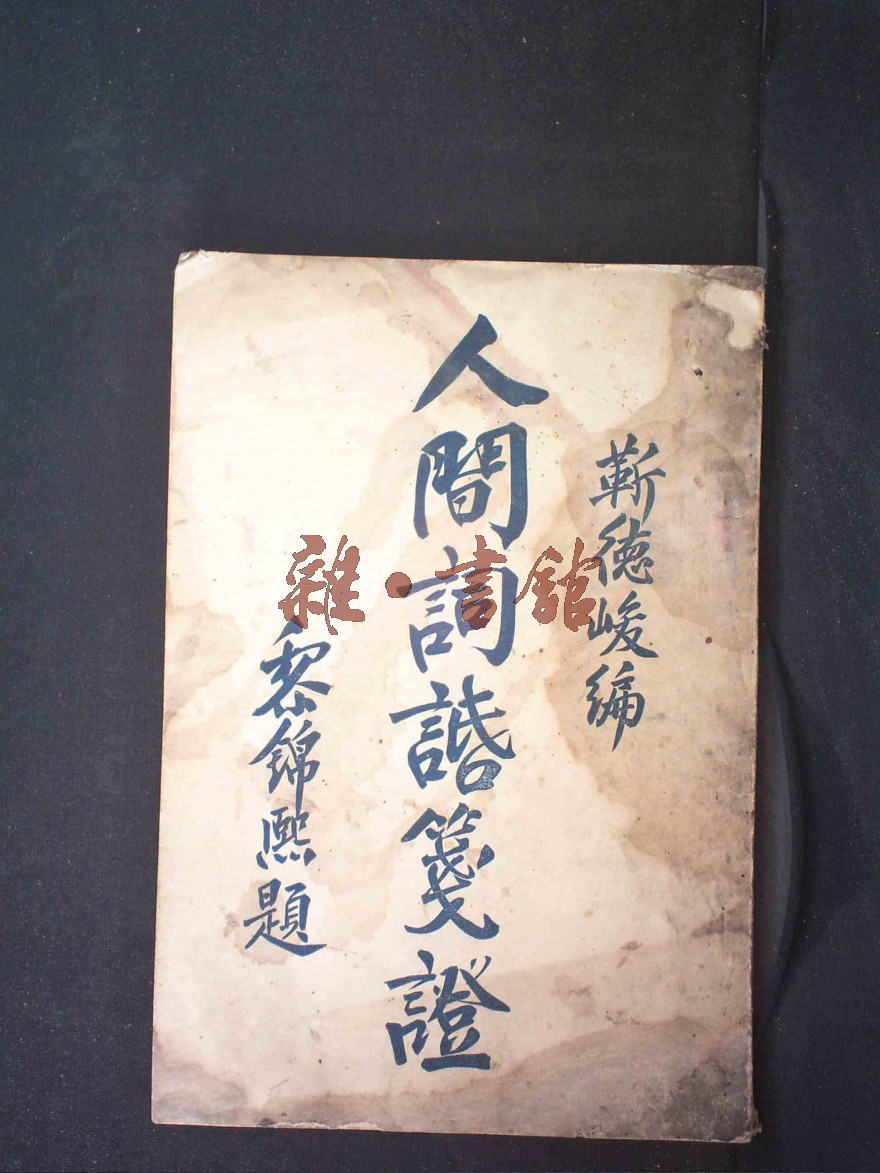 靳德峻編
人間詞話箋證
黎錦熙題
雜·書館